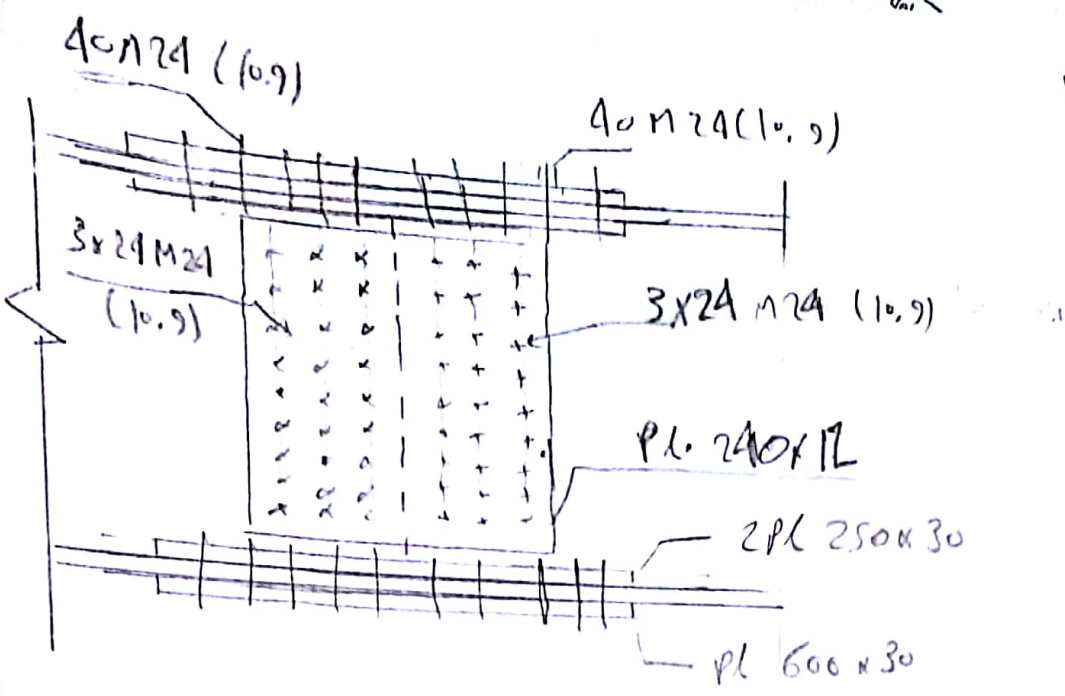 40M24 (10.9)
40M24(10.9)
3x24M24
(10.9)
3x24 M24 (10.9)
Pl. 240x12
2Pl 250x30
Pl 600x30